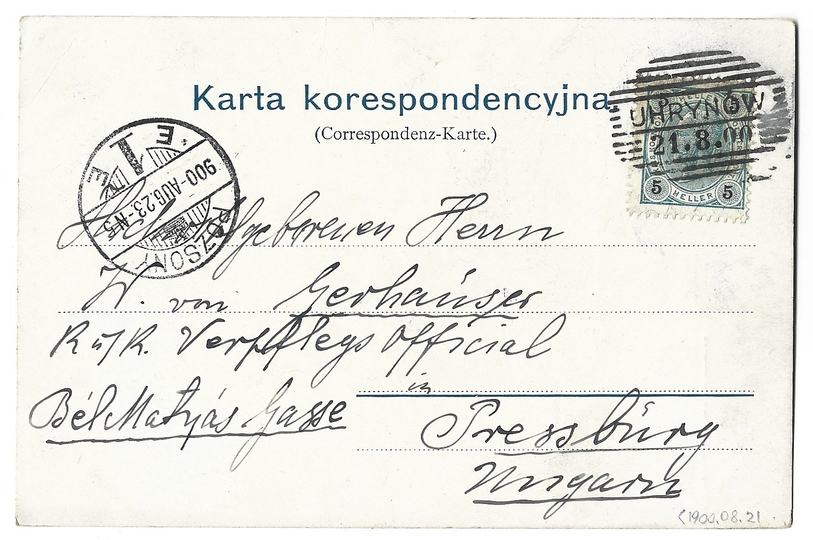 Karta korespondencyjna.
(Correspondenz-Karte.)
UHRYNÓW
21.8.00
5
5 HELLER 5
POZSONY
900-AUG.23-N5
E. 1 E
Hochwohlgeborenen Herrn
W. von Gerhauser
K u/K. Verpflegs Official
in
Bél Matyás Gasse
Pressbürg
Ungarn
1900.08.21